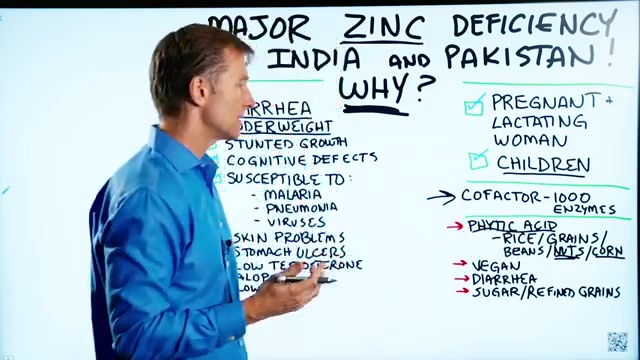 MAJOR ZINC DEFICIENCY
INDIA AND PAKISTAN!
WHY?
ARRHEA
DERWEIGHT
STUNTED GROWTH
COGNITIVE DEFECTS
SUSCEPTIBLE TO:
- MALARIA
- PNEUMONIA
- VIRUSES
SKIN PROBLEMS
STOMACH ULCERS
LOW
ALOP
LOW
PREGNANT +
LACTATING
WOMAN
CHILDREN
COFACTOR - 1000
ENZYMES
PHYTIC ACID
- RICE/GRAINS/
BEANS/NUTS/CORN
VEGAN
DIARRHEA
SUGAR/REFINED GRAINS